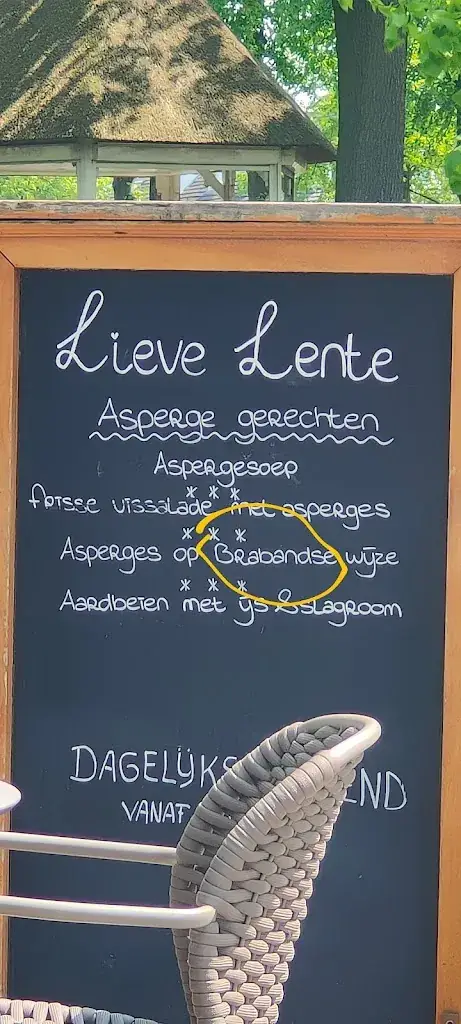 Lieve Lente
Asperge gerechten
Aspergesoep
* * *
frisse vissalade met asperges
* * *
Asperges op Brabandse wijze
* * *
Aardbeien met ijs & slagroom
DAGELIJKS
VANAF